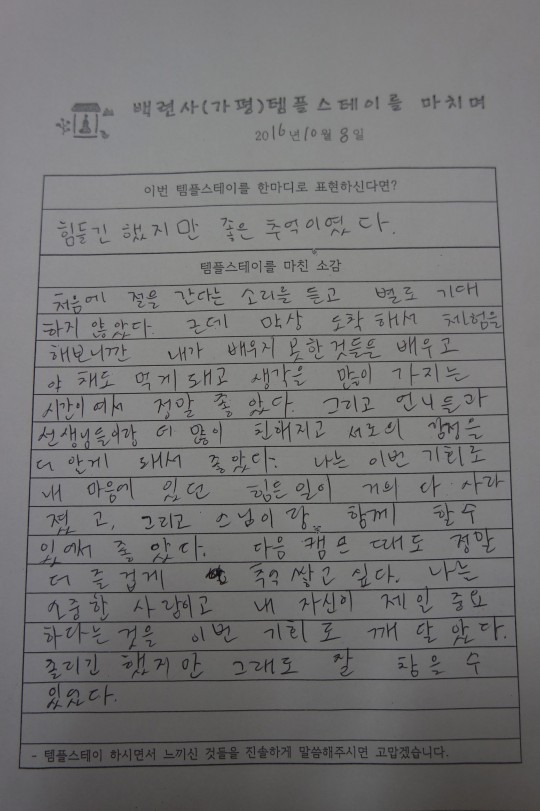 백련사(가평)템플스테이를 마치며
2016년10월 8일
이번 템플스테이를 한마디로 표현하신다면?
힘들긴 했지만 좋은 추억이였다.
템플스테이를 마친 소감
처음에 절을 간다는 소리를 듣고 별로 기대
하지 않았다. 근데 막상 도착해서 체험을
해보니깐 내가 배우지 못한것들을 배우고
야채도 먹게돼고 생각을 많이 가지는
시간이여서 정말 좋았다. 그리고 언니들과
선생님들이랑 더 많이 친해지고 서로의 감정을
더 알게 돼서 좋았다. 나는 이번 기회로
내 마음에 있던 힘든일이 거의 다 사라
졌고, 그리고 스님이랑 함께 할수
있어서 좋았다. 다음 캠프 때도 정말
더 즐겁게 추억쌓고 싶다. 나는
소중한 사람이고 내 자신이 제일 중요
하다는것을 이번 기회로 깨달았다.
졸리긴 했지만 그래도 잘 참을수
있었다.
- 템플스테이 하시면서 느끼신 것들을 진솔하게 말씀해주시면 고맙겠습니다.